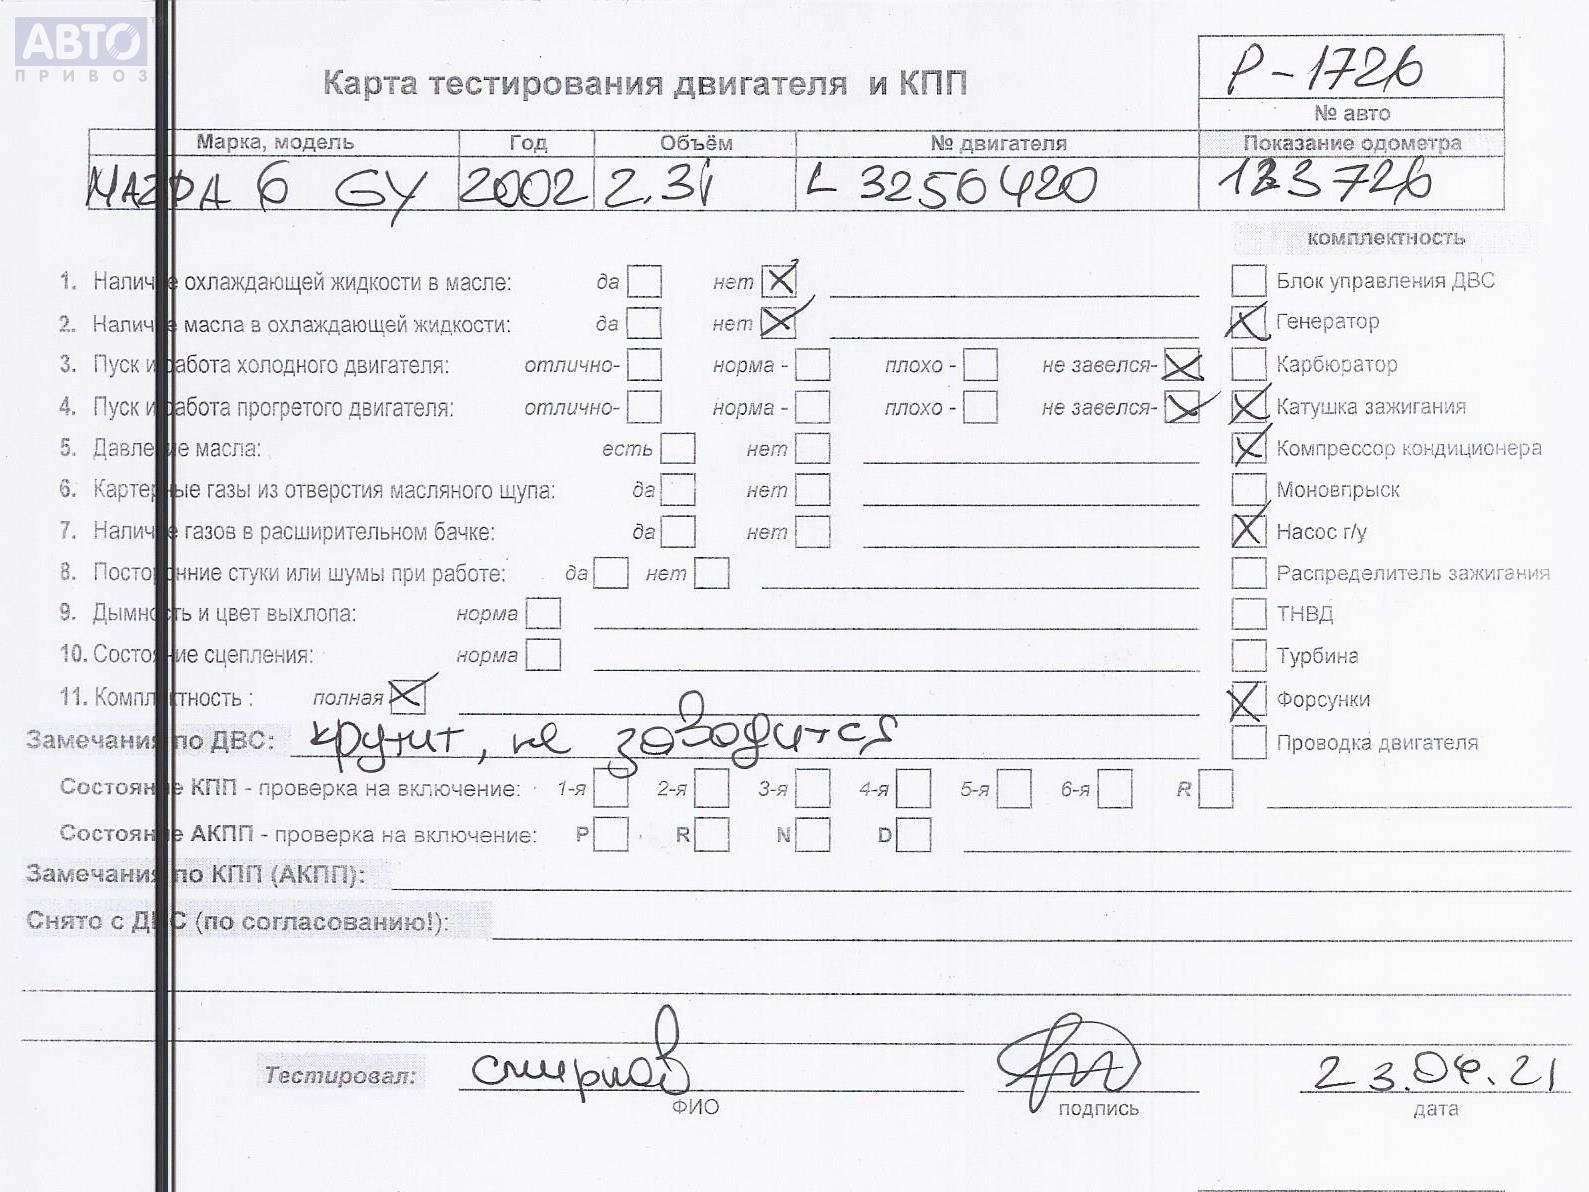 АВТО
ПРИВОЗ
Карта тестирования двигателя и КПП
P-1726
№ авто
Марка, модель Год Объём № двигателя Показание одометра
MAZDA 6 GY 2002 2.3i L 3256420 133726
комплектность
1. Наличие охлаждающей жидкости в масле: да нет Блок управления ДВС
2. Наличие масла в охлаждающей жидкости: да нет Генератор
3. Пуск и работа холодного двигателя: отлично- норма - плохо - не завелся- Карбюратор
4. Пуск и работа прогретого двигателя: отлично- норма - плохо - не завелся- Катушка зажигания
5. Давление масла: есть нет Компрессор кондиционера
6. Картерные газы из отверстия масляного щупа: да нет Моновпрыск
7. Наличие газов в расширительном бачке: да нет Насос г/у
8. Посторонние стуки или шумы при работе: да нет Распределитель зажигания
9. Дымность и цвет выхлопа: норма ТНВД
10. Состояние сцепления: норма Турбина
11. Комплектность : полная Форсунки
Замечания по ДВС: крутит, не заводится Проводка двигателя
Состояние КПП - проверка на включение: 1-я 2-я 3-я 4-я 5-я 6-я R
Состояние АКПП - проверка на включение: P R N D
Замечания по КПП (АКПП):
Снято с ДВС (по согласованию!):
Тестировал: Смирнов 23.04.21
ФИО подпись дата